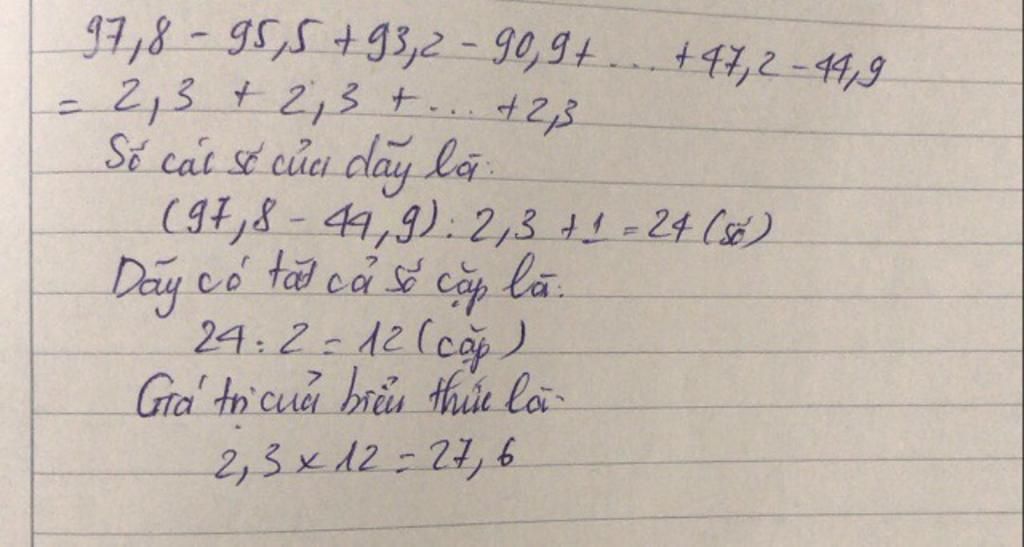 97,8 - 95,5 + 93,2 - 90,9 + ... + 47,2 - 44,9
= 2,3 + 2,3 + ... + 2,3
Số các số của dãy là:
(97,8 - 44,9) : 2,3 + 1 = 24 (số)
Dãy có tất cả số cặp là:
24 : 2 = 12 (cặp)
Giá trị của biểu thức là:
2,3 × 12 = 27,6